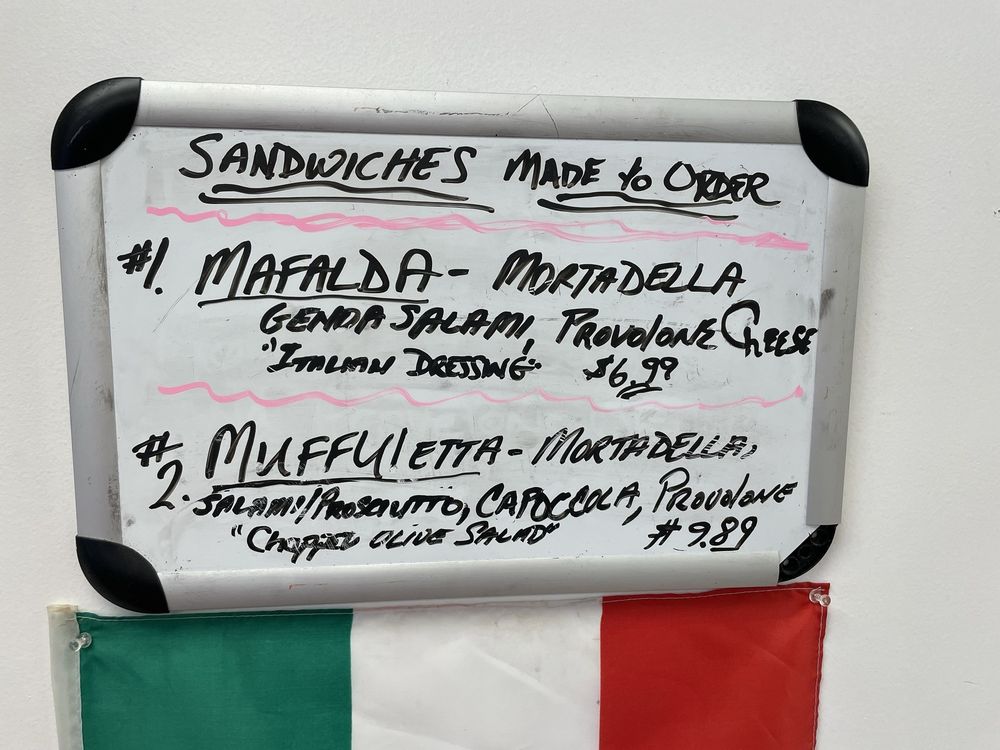 SANDWICHES MADE to ORDER
#1. MAFALDA - MORTADELLA
GENOA SALAMI, PROVOLONE CHEESE
"ITALIAN DRESSING" $6.99
# 2. MUFFULETTA - MORTADELLA,
SALAMI/PROSCIUTTO, CAPOCCOLA, PROVOLONE
"Chopped OLIVE SALAD" # 9.89